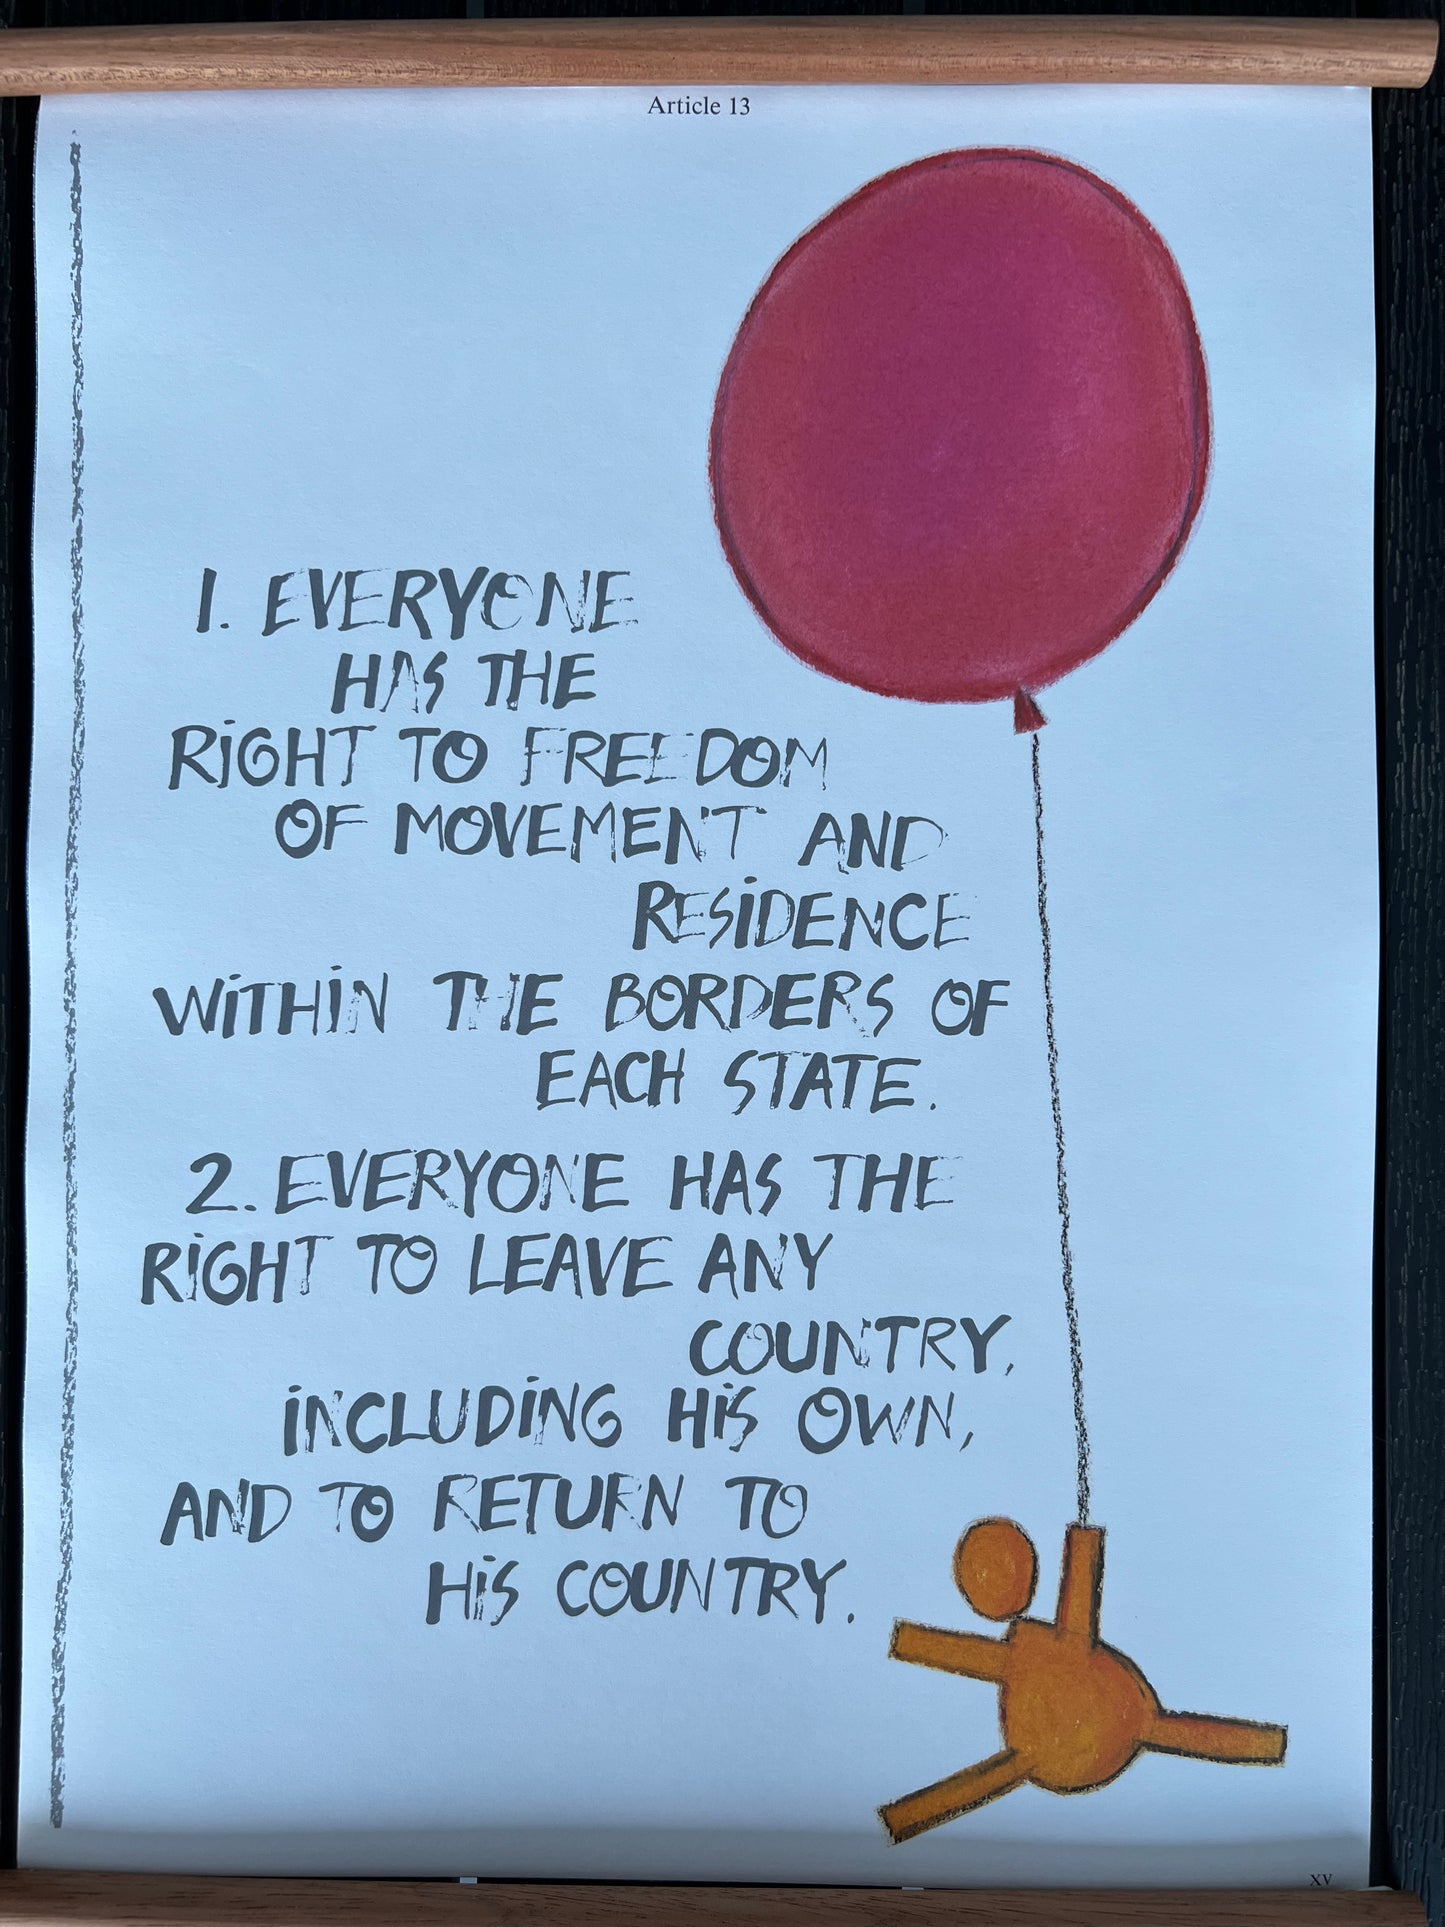 Article 13
1. EVERYONE
HAS THE
RiGHT TO FREEDOM
OF MOVEMENT AND
RESiDENCE
WiTHiN THE BORDERS OF
EACH STATE.
2. EVERYONE HAS THE
RiGHT TO LEAVE ANY
COUNTRY,
iNCLUDiNG HiS OWN,
AND TO RETURN TO
HiS COUNTRY.
XV